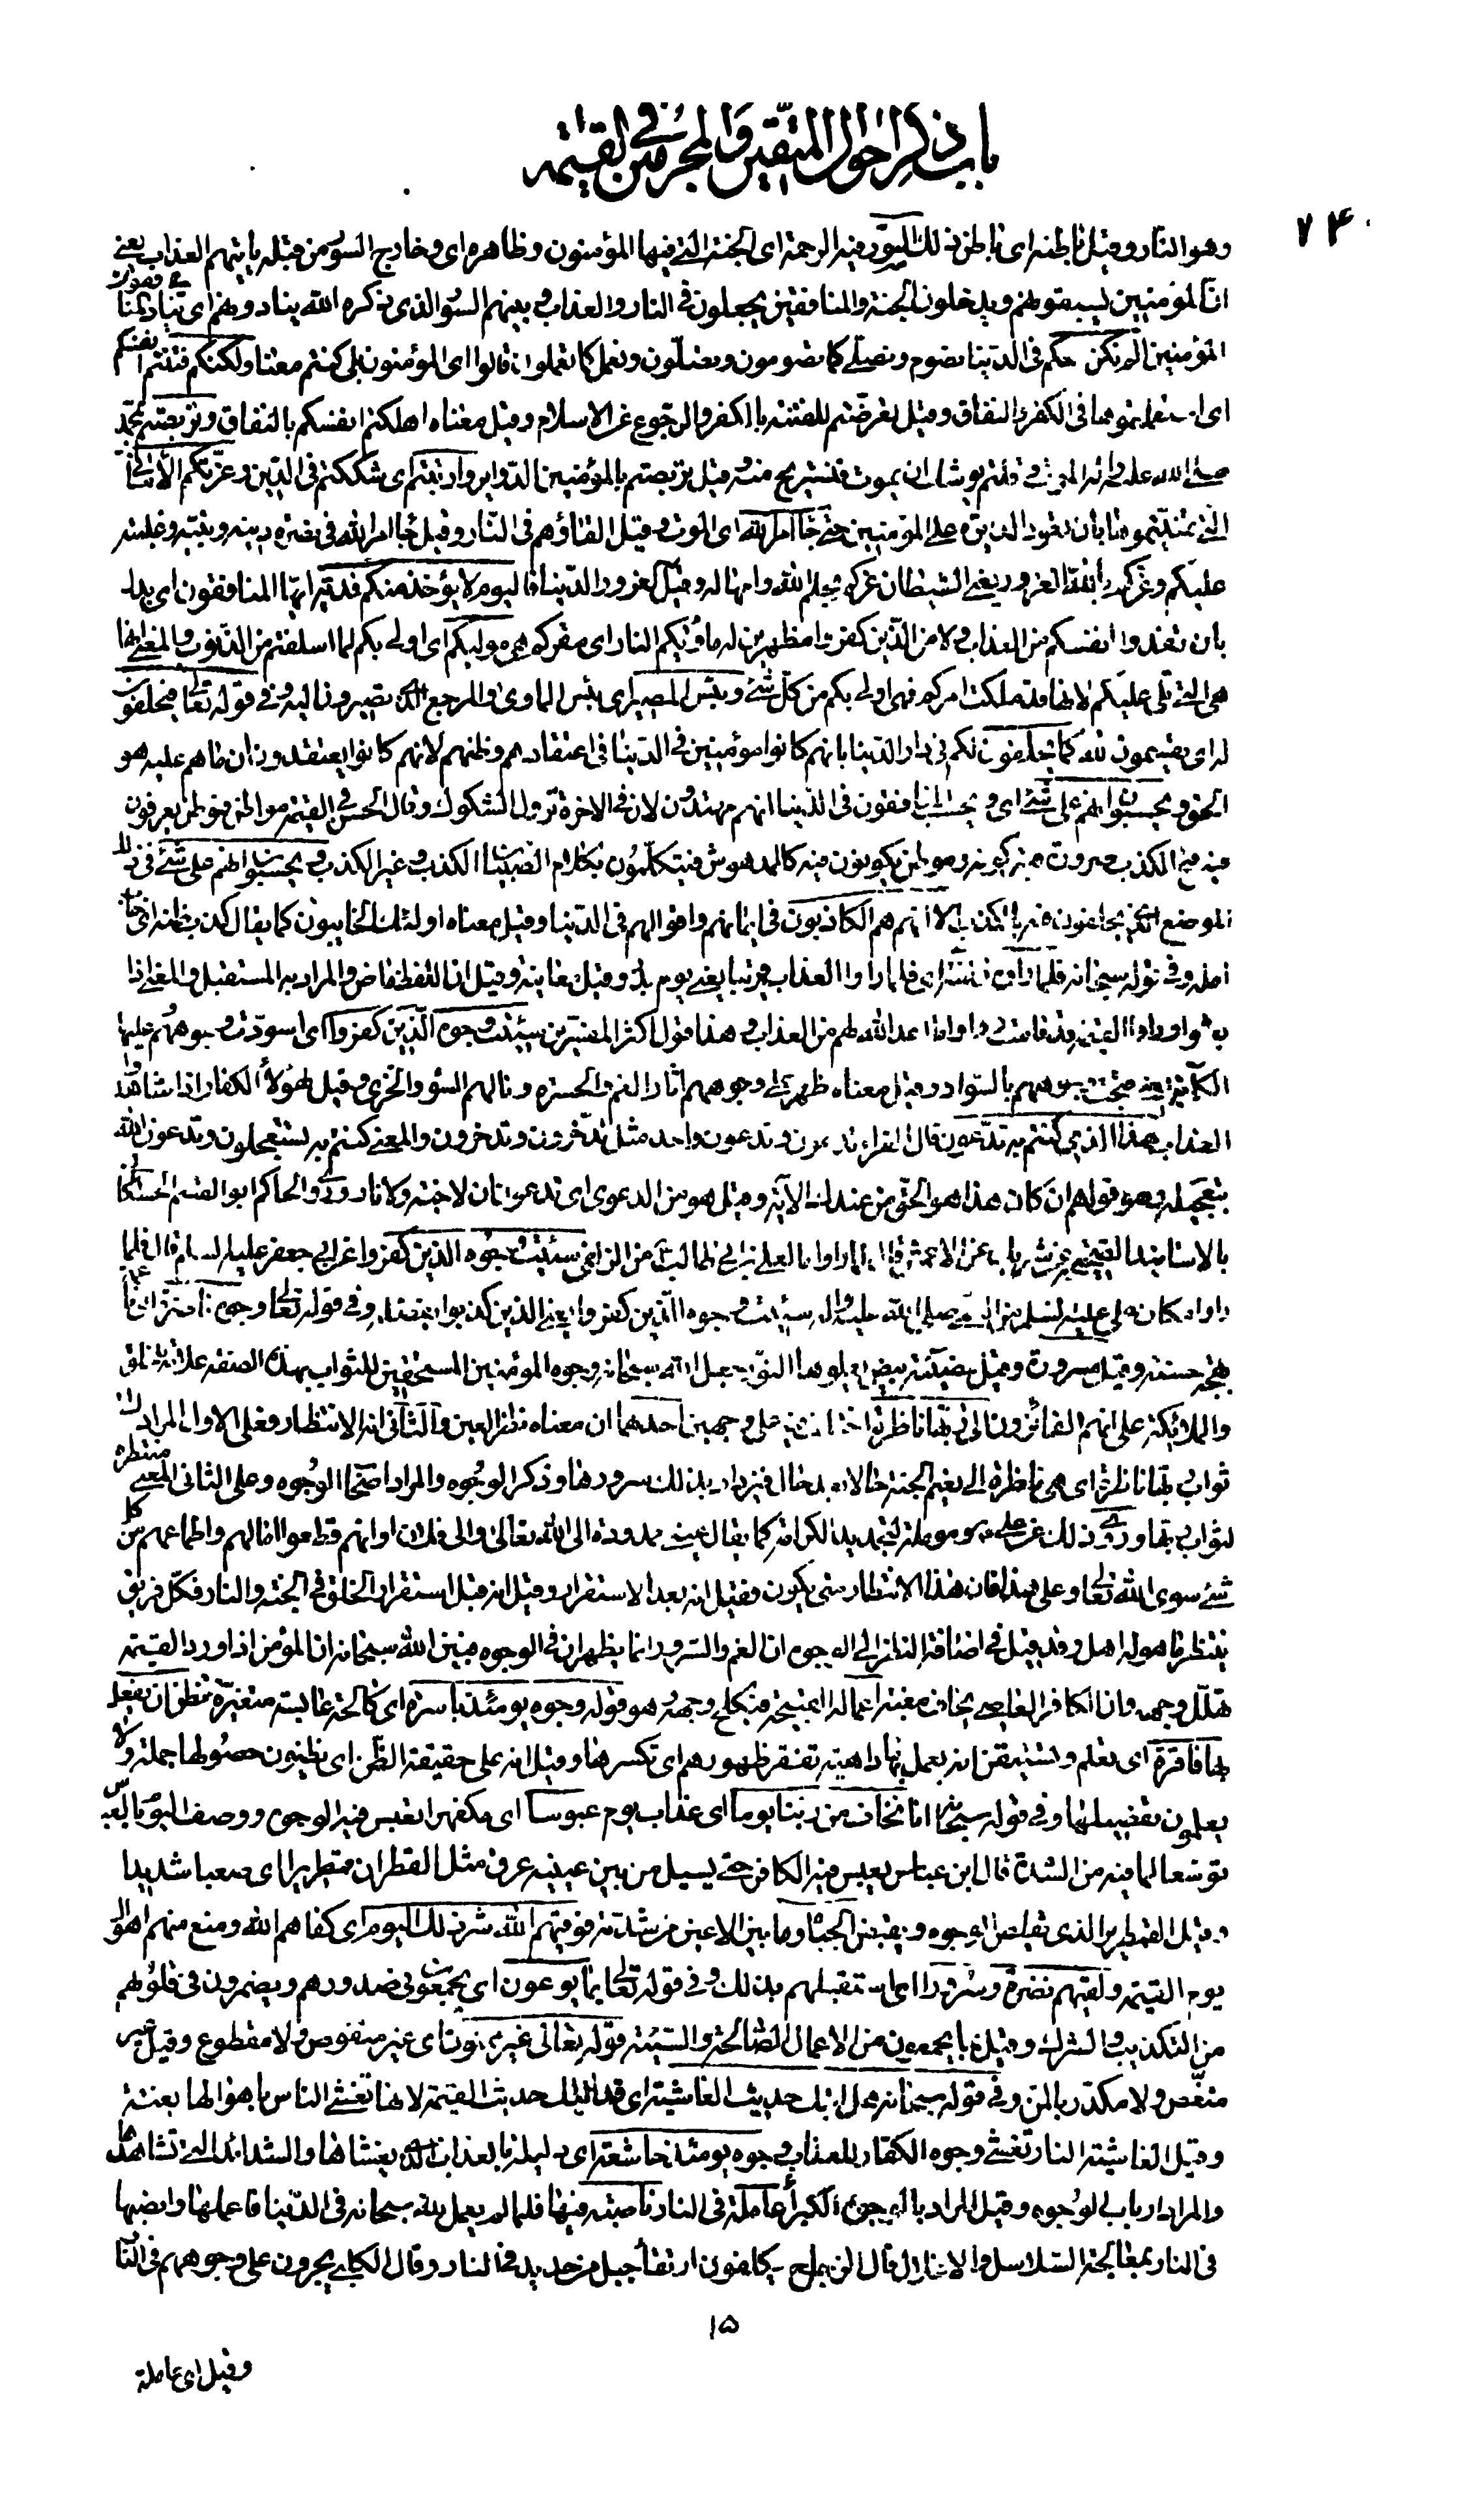 باب ذكر احوال المتقين والمجرمين فى القيمة
٧٤
وهو النار وقيل باطنه اى باطن ذلك السور فيه الرحمة اى الجنة التى فيها المؤمنون وظاهره اى وخارج السور من قبله ياتيهم العذاب يعنى
ان المؤمنين يسبقونهم ويدخلون الجنة والمنافقين يجعلون فى النار والعذاب وبينهم السور الذى ذكره الله ينادونهم اى ينادى المنافقون
المؤمنين الم نكن معكم فى الدنيا نصوم ونصلى كما تصومون وتصلون ونعمل كما تعملون قالوا اى المؤمنون بلى كنتم معنا ولكنكم فتنتم انفسكم
اى استعملتموها فى الكفر والنفاق وقيل تعرضتم للفتنة بالكفر والرجوع عن الاسلام وقيل معناه اهلكتم انفسكم بالنفاق وتربصتم بمحمد
صلى الله عليه واله الموت وقلتم يوشك ان يموت فنستريح منه وقيل تربصتم بالمؤمنين الدواير وارتبتم اى شككتم فى الدين وغرتكم الامانى
التى تمنيتموها بان تعود الدايرة على المؤمنين حتى جاء امر الله اى الموت وقيل القاؤهم فى النار وقيل جاء امر الله فى نصرة دينه ونبيه وغلبته
عليكم وغركم بالله الغرور يعنى الشيطان غركم بحلم الله وامهاله وقيل الغرور الدنيا فاليوم لا يؤخذ منكم فدية ايها المنافقون اى بدل
بان تفدوا انفسكم من العذاب ولا من الذين كفروا مظهرين له ماويكم النار اى مقركم هى موليكم اى اولى بكم لما اسلفتم من الذنوب والمعنى انها
هى التى تلى عليكم لانها قد ملكت امركم فهى اولى بكم من كل شئ وبئس المصير اى بئس الماوى والمرجع الذى تصيرون اليه وفى قوله تعالى فيحلفون
له اى يقسمون لله كما يحلفون لكم فى دار الدنيا بانهم كانوا مؤمنين فى الدنيا فى اعتقادهم وظنهم لانهم كانوا يعتقدون ان ما هم عليه هو
الحق ويحسبون انهم على شئ اى ويحسب المنافقون فى الدنيا انهم مهتدون لان فى الاخرة تزول الشكوك وقال الحسن فى القيمة مواطن فموطن يعرفون
فيه قبح الكذب ضرورة فيتركونه وموطن يكونون فيه كالمدهوش فيتكلمون بكلام الصبيان الكذب وغير الكذب ويحسبون انهم على شئ فى ذلك
الموضع الذى يحلفون فيه بالكذب الا انهم هم الكاذبون فى ايمانهم واقوالهم فى الدنيا وقيل معناه اولئك الخايبون كما يقال كذب ظنه اى خاب
امله وفى قوله سبحانه فلما راوه زلفة اى فلما راوا العذاب قريبا يعنى يوم بدر وقيل معاينة وقيل ان اللفظ ماض والمراد به المستقبل والمعنى اذا
بعثوا وراوا القيمة قد قامت وراوا ما اعد الله لهم من العذاب وهذا قول اكثر المفسرين سيئت وجوه الذين كفروا اى اسودت وجوههم عليها
الكآبة يعنى قبحت وجوههم بالسواد وقيل معناه ظهر على وجوههم اثار الغم والحسرة ونالهم السوء والخزى وقيل لهؤلاء الكفار اذا شاهدوا
العذاب هذا الذى كنتم به تدعون قال الفراء تدعون وتدعون واحد مثل تدخرون وتدخرون والمعنى كنتم به تستعجلون وتدعون الله
بتعجيله وهو قولهم ان كان هذا هو الحق من عندك الآية وقيل هو من الدعوى اى تدعون ان لا جنة ولا نار وروى الحاكم ابو القسم الحسكانى
بالاسانيد الصحيحة عن شريك عن الاعمش قال لما راوا ما لعلى بن ابى طالب من الزلفى سيئت وجوه الذين كفروا وعن ابى جعفر عليه السلم قال فلما
راوا مكان على عليه السلم من النبى صلى الله عليه واله سيئت وجوه الذين كفروا يعنى الذين كذبوا بفضله وفى قوله تعالى وجوه ناضرة اى ناعمة
بهجة حسنة وقيل مسرورة وقيل مضيئة بيض يعلوها النور جعل الله سبحانه وجوه المؤمنين المستحقين للثواب بهذه الصفة علامة للخلق
والملائكة على انهم الفائزون الى ربها ناظرة اختلف فيه على وجهين احدهما ان معناه نظر العين والثانى انه الانتظار وعلى الاول المراد الى
ثواب ربها ناظرة اى هى ناظرة الى نعيم الجنة حالا بعد حال فيزداد بذلك سرورها وذكر الوجوه والمراد اصحاب الوجوه وعلى الثانى المعنى منتظرة
لثواب ربها وروى ذلك عن على وهو مؤملة لتجديد الكرامة كما يقال عينى ممدودة الى الله تعالى والى فلان او انهم قطعوا امالهم واطماعهم من كل
شئ سوى الله تعالى وعلى هذا فان هذا الانتظار متى يكون فقيل انه بعد الاستقرار وقيل انه قبل استقرار الخلق فى الجنة والنار فكل فريق
ينتظر ما هو له اهل وقد قيل فى اضافة النظر الى الوجوه ان الغم والسرور انما يظهران فى الوجوه فبين الله سبحانه ان المؤمن اذا ورد القيمة
تهلل وجهه وان الكافر العاصى يخاف مغبة اعماله القبيحة فيكلح وجهه وهو قوله وجوه يومئذ باسرة اى كالحة عابسة متغيرة تظن ان يفعل
بها فاقرة اى تعلم وتستيقن انه يعمل بها داهية تفقر ظهورهم اى تكسرها وقيل انه على حقيقة الظن اى يظنون حصولها جملة ولا
يعلمون تفصيلها وفى قوله سبحانه انا نخاف من ربنا يوما اى عذاب يوم عبوسا اى مكفهرا تعبس فيه الوجوه ووصف اليوم بالعبوس
توسعا لما فيه من الشدة قال ابن عباس يعبس فيه الكافر حتى يسيل من بين عينيه عرق مثل القطران قمطريرا اى صعبا شديدا
وقيل القمطرير الذى يقلص الوجوه ويقبض الجباه وما بين الاعين من شدته فوقيهم الله شر ذلك اليوم اى كفاهم الله ومنع منهم اهوال
يوم القيمة ولقيهم نضرة وسرورا اى استقبلهم بذلك وفى قوله تعالى بما يوعون اى يجمعون فى صدورهم ويضمرون فى قلوبهم
من التكذيب والشرك وقيل بما يجمعون من الاعمال الصالحة والسيئة قوله تعالى غير ممنون اى غير منقوص ولا مقطوع وقيل غير
منغص ولا مكدر بالمن وفى قوله سبحانه هل اتيك حديث الغاشية اى قد اتيك حديث القيمة لانها تغشى الناس باهوالها بغتة
وقيل الغاشية النار تغشى وجوه الكفار بالعذاب وجوه يومئذ خاشعة اى ذليلة بالعذاب الذى يغشاها والشدائد التى تشاهدها
والمراد ارباب الوجوه وقيل المراد بالوجوه الكبراء عاملة فى النار ناصبة فيها فلما لم يعمل لله سبحانه فى الدنيا فاعملها وانصبها
فى النار بمعالجة السلاسل والاغلال قال الضحاك يكلفون ارتقاء جبل من حديد فى النار وقال الكلبى يجرون على وجوههم فى النار
١٥
وقيل اى عاملة